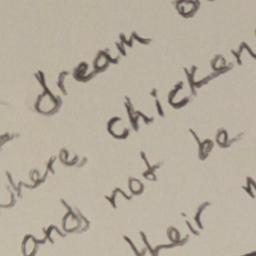 dream o
where chicken
and not be
their m